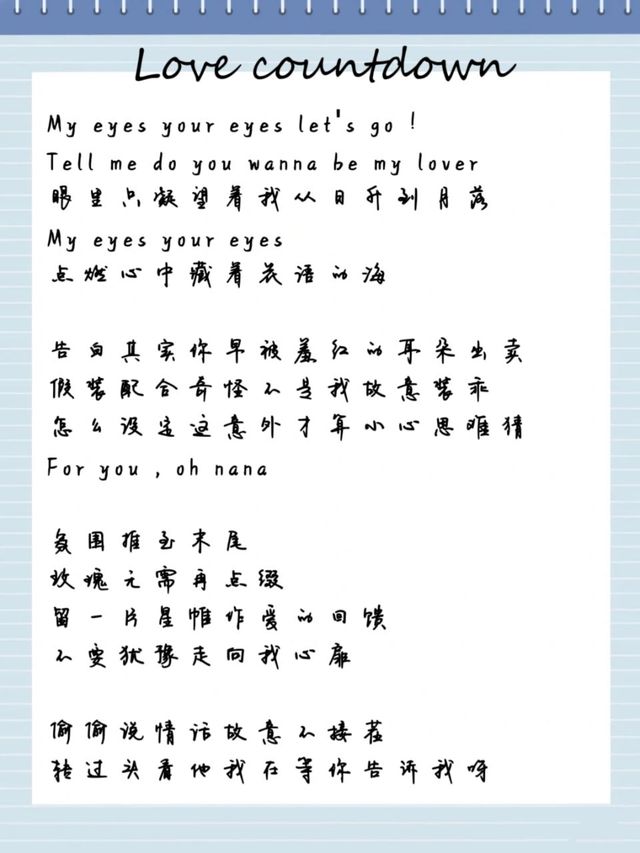 Love countdown
My eyes your eyes let's go !
Tell me do you wanna be my lover
眼里只凝望着我从日升到月落
My eyes your eyes
点燃心中藏着花语的海
告白其实你早被羞红的耳朵出卖
假装配合奇怪不是我故意装乖
怎么设定这意外才算小心思难猜
For you , oh nana
氛围推至末尾
玫瑰无需再点缀
留一片星帷作爱的回馈
不要犹豫走向我心扉
偷偷说情话故意不接茬
转过头看他我在等你告诉我呀